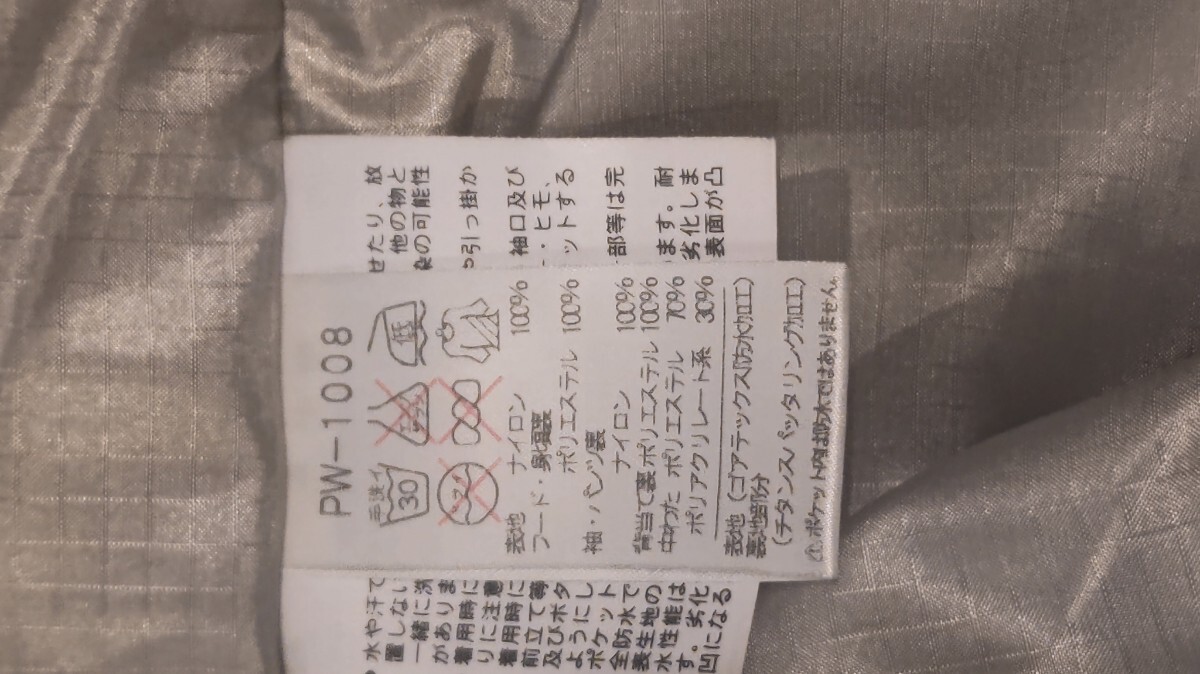 PW-1008
手洗イ 30 低
ドライ
表地 ナイロン 100%
フード・身頃裏
ポリエステル 100%
袖・パンツ裏
ナイロン 100%
背当て裏 ポリエステル 100%
中わた ポリエステル 70%
ポリアクリレート系 30%
表地（ゴアテックス防水加工）
裏地部分
（チタンスパッタリング加工）
ポケット内は防水ではありません。
水や汗で
置しない
一緒に洗
がありま
着用時に
りに注意
着用時に
前立て等
及びボタ
ようにし
ポケット
全防水で
表生地の
水性能は
す。劣化
凹になる
せたり、放
他の物と
染の可能性
引っ掛か
袖口及び
・ヒモ、
ットする
部等は完
ます。耐
劣化しま
表面が凸